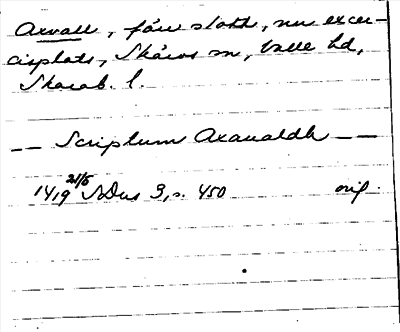 Axvall, förr slott, nu exer-
cisplats, Skärvs sn, Valle hd,
Skarab. l.
— Scriptum Axawaldh —
1419 21/5 SDns 3, s. 450 orig.